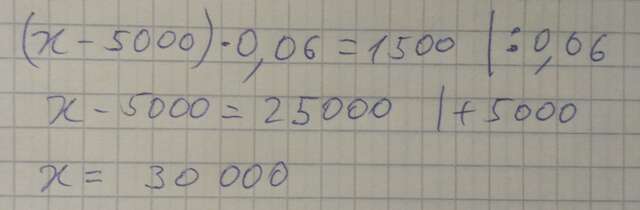 (x - 5000) · 0,06 = 1500 | : 0,06
x - 5000 = 25000 | + 5000
x = 30 000